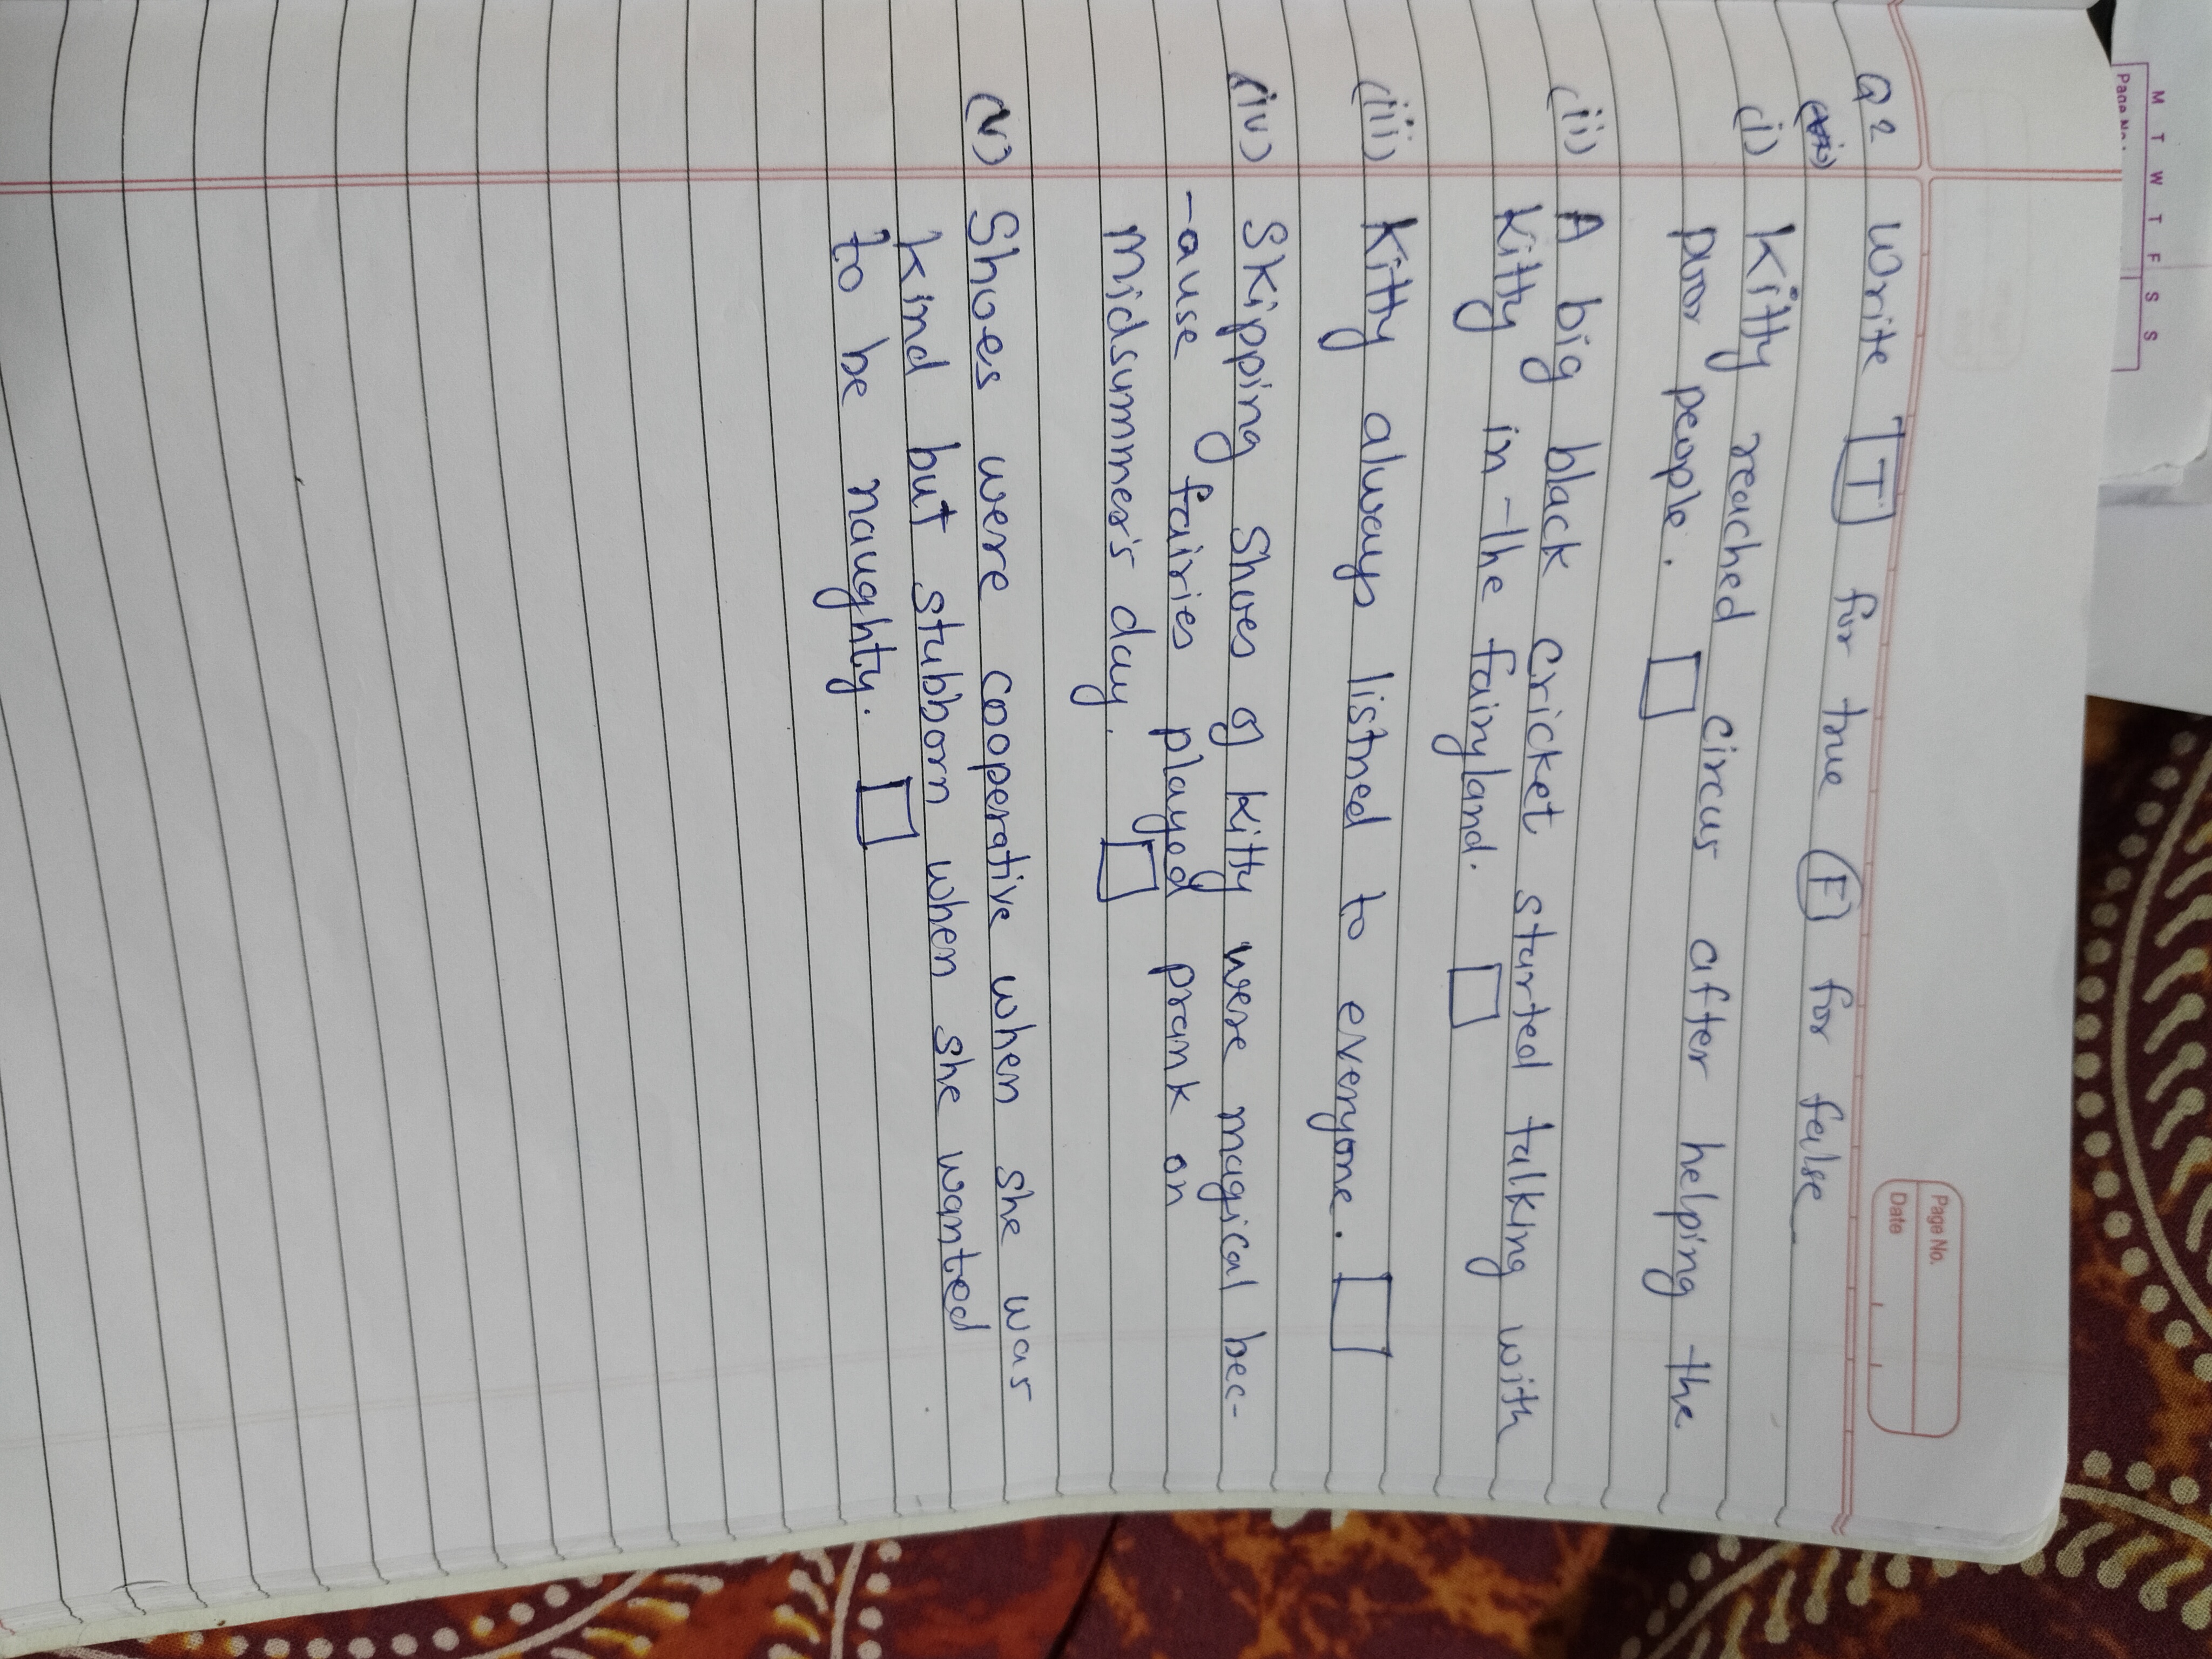 M T W T F S S
Page No.
Page No.
Date
Q2 Write T for true F for false
(i) Kitty reached circus after helping the
poor people.
(ii) A big black cricket started talking with
Kitty in the fairyland.
(iii) Kitty always listned to everyone.
(iv) Skipping Shoes of Kitty were magical bec-
-ause fairies played prank on
midsummer's day.
(v) Shoes were cooperative when she was
kind but stubborn when she wanted
to be naughty.